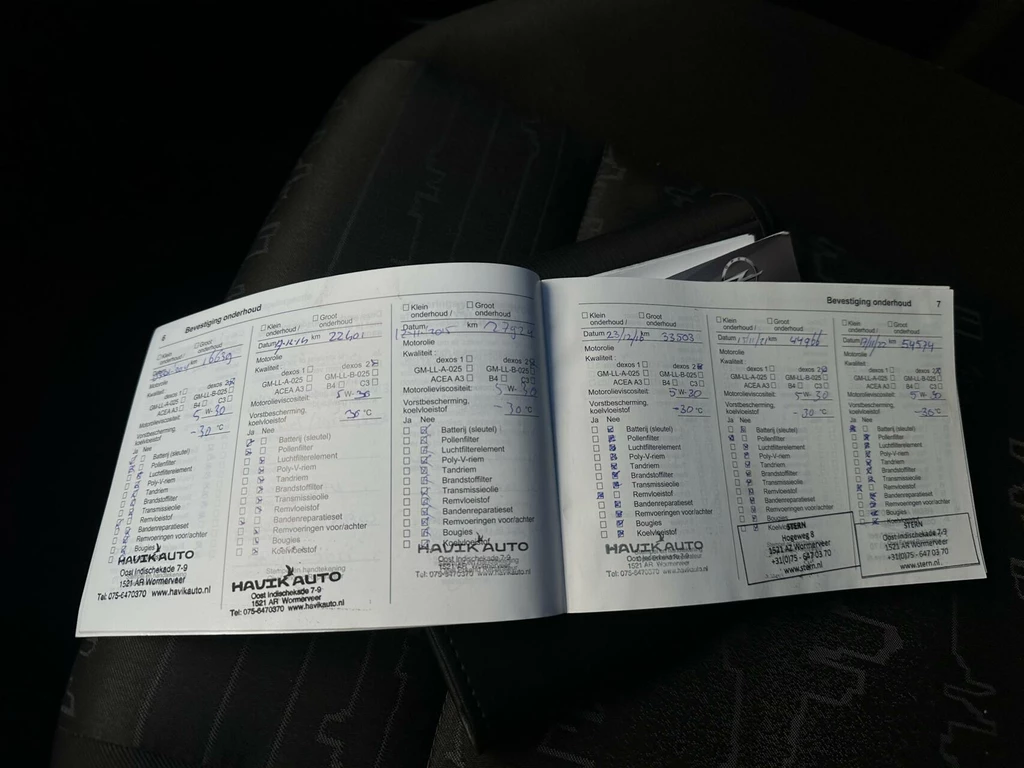 6
Bevestiging onderhoud
☐ Klein onderhoud / ☐ Groot onderhoud
km 16639
Motorolie
Kwaliteit:
dexos 1 ☐ dexos 2
GM-LL-A-025 ☐ GM-LL-B-025 ☐
ACEA A3 ☐ B4 ☐ C3 ☐
Motorolieviscositeit: 5W-30
Vorstbescherming, koelvloeistof -30 °C
Ja Nee
Batterij (sleutel)
Pollenfilter
Luchtfilterelement
Poly-V-riem
Tandriem
Brandstoffilter
Transmissieolie
Remvloeistof
Bandenreparatieset
Remvoeringen voor/achter
Bougies
HAVIK AUTO
Oost Indischekade 7-9
1521 AR Wormerveer
Tel: 075-6470370 www.havikauto.nl
☐ Klein onderhoud / ☐ Groot onderhoud
Datum km 22601
Motorolie
Kwaliteit:
dexos 1 ☐ dexos 2
GM-LL-A-025 ☐ GM-LL-B-025 ☐
ACEA A3 ☐ B4 ☐ C3 ☐
Motorolieviscositeit: 5W-30
Vorstbescherming, koelvloeistof 36 °C
Ja Nee
Batterij (sleutel)
Pollenfilter
Luchtfilterelement
Poly-V-riem
Tandriem
Brandstoffilter
Transmissieolie
Remvloeistof
Bandenreparatieset
Remvoeringen voor/achter
Bougies
Koelvloeistof
HAVIK AUTO
Oost Indischekade 7-9
1521 AR Wormerveer
Tel: 075-6470370 www.havikauto.nl
☐ Klein onderhoud / ☐ Groot onderhoud
Datum km 27924
Motorolie
Kwaliteit:
dexos 1 ☐ dexos 2
GM-LL-A-025 ☐ GM-LL-B-025 ☐
ACEA A3 ☐ B4 ☐ C3 ☐
Motorolieviscositeit: 5W-30
Vorstbescherming, koelvloeistof -30 °C
Ja Nee
Batterij (sleutel)
Pollenfilter
Luchtfilterelement
Poly-V-riem
Tandriem
Brandstoffilter
Transmissieolie
Remvloeistof
Bandenreparatieset
Remvoeringen voor/achter
Bougies
Koelvloeistof
HAVIK AUTO
Oost Indischekade 7-9
1521 AR Wormerveer
Bevestiging onderhoud 7
☐ Klein onderhoud / ☐ Groot onderhoud
Datum 23/12/16 km 33503
Motorolie
Kwaliteit:
dexos 1 ☐ dexos 2
GM-LL-A-025 ☐ GM-LL-B-025 ☐
ACEA A3 ☐ B4 ☐ C3 ☐
Motorolieviscositeit: 5W-30
Vorstbescherming, koelvloeistof -30 °C
Ja Nee
Batterij (sleutel)
Pollenfilter
Luchtfilterelement
Poly-V-riem
Tandriem
Brandstoffilter
Transmissieolie
Remvloeistof
Bandenreparatieset
Remvoeringen voor/achter
Bougies
Koelvloeistof
HAVIK AUTO
Oost Indischekade 7-9
1521 AR Wormerveer
☐ Klein onderhoud / ☐ Groot onderhoud
Datum km 44966
Motorolie
Kwaliteit:
dexos 1 ☐ dexos 2
GM-LL-A-025 ☐ GM-LL-B-025 ☐
ACEA A3 ☐ B4 ☐ C3 ☐
Motorolieviscositeit: 5W-30
Vorstbescherming, koelvloeistof -30 °C
Ja Nee
Batterij (sleutel)
Pollenfilter
Luchtfilterelement
Poly-V-riem
Tandriem
Brandstoffilter
Transmissieolie
Remvloeistof
Bandenreparatieset
Remvoeringen voor/achter
Bougies
Koelvloeistof
STERN
Hogeweg 8
1521 AZ Wormerveer
+31(0)75 - 647 03 70
www.stern.nl
☐ Klein onderhoud / ☐ Groot onderhoud
Datum km 54574
Motorolie
Kwaliteit:
dexos 1 ☐ dexos 2
GM-LL-A-025 ☐ GM-LL-B-025 ☐
ACEA A3 ☐ B4 ☐ C3 ☐
Motorolieviscositeit: 5W-30
Vorstbescherming, koelvloeistof -30 °C
Ja Nee
Batterij (sleutel)
Pollenfilter
Luchtfilterelement
Poly-V-riem
Tandriem
Brandstoffilter
Transmissieolie
Remvloeistof
Bandenreparatieset
Remvoeringen voor/achter
Bougies
Koelvloeistof
STERN
Oost-Indischekade 7-9
1521 AR Wormerveer
+31(0)75 - 647 03 70
www.stern.nl